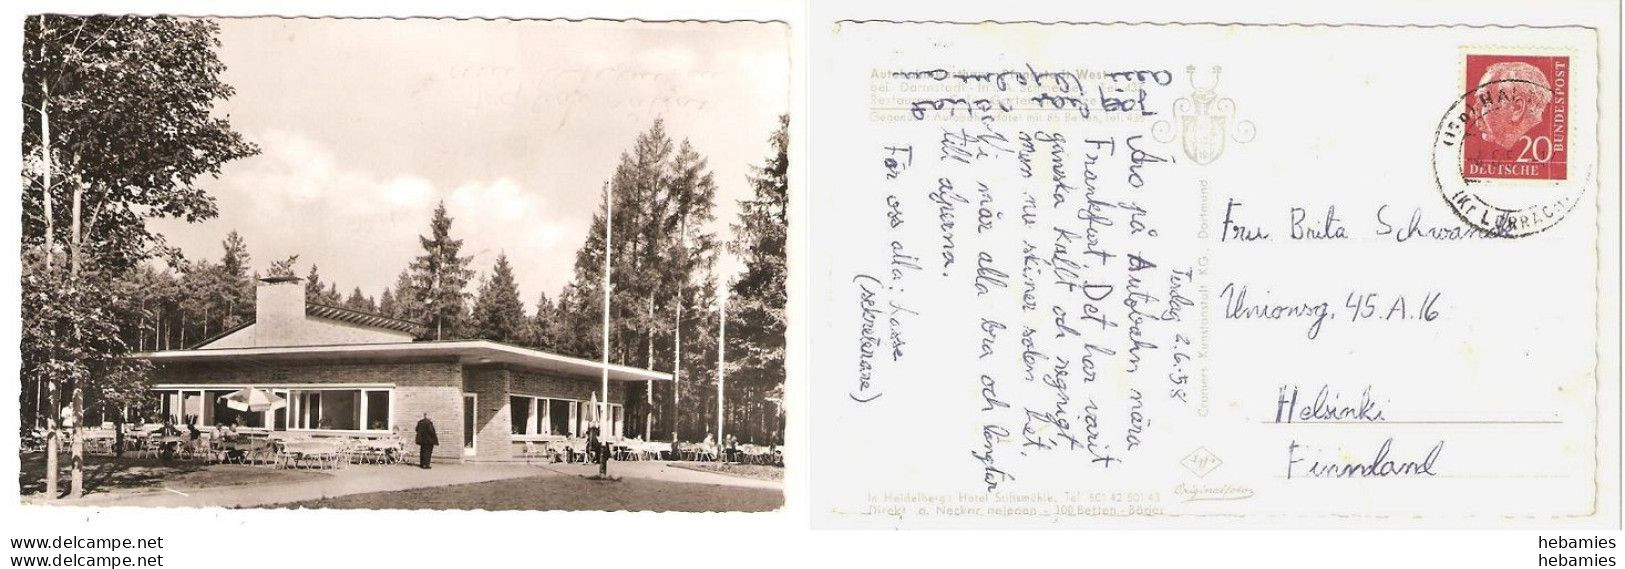 Autobahn-Rasthaus Pfungstadt West
bei Darmstadt
Restaurant
Gegenüber Autobahn-Hotel mit 86 Betten, Tel.
Tisdag 2.6.58
Äro på Autobahn nära
Frankfurt. Det har varit
ganska kallt och regnigt,
men nu skiner solen het.
Vi mår alla bra och längtar
till alperna.
För oss alla; Lasse
(sekreterare)
Cramers Kunstanstalt KG. Dortmund
In Heidelberg: Hotel Stiftsmühle, Tel 501 42 501 43
Direkt a. Neckar gelegen - 100 Betten - Bäder
Agfa
Originalfoto
20
DEUTSCHE
BUNDESPOST
(Kr LÖRRACH)
Fru Brita Schwanck
Unionsg. 45.A.16
Helsinki
Finnland
www.delcampe.net
www.delcampe.net
hebamies
hebamies